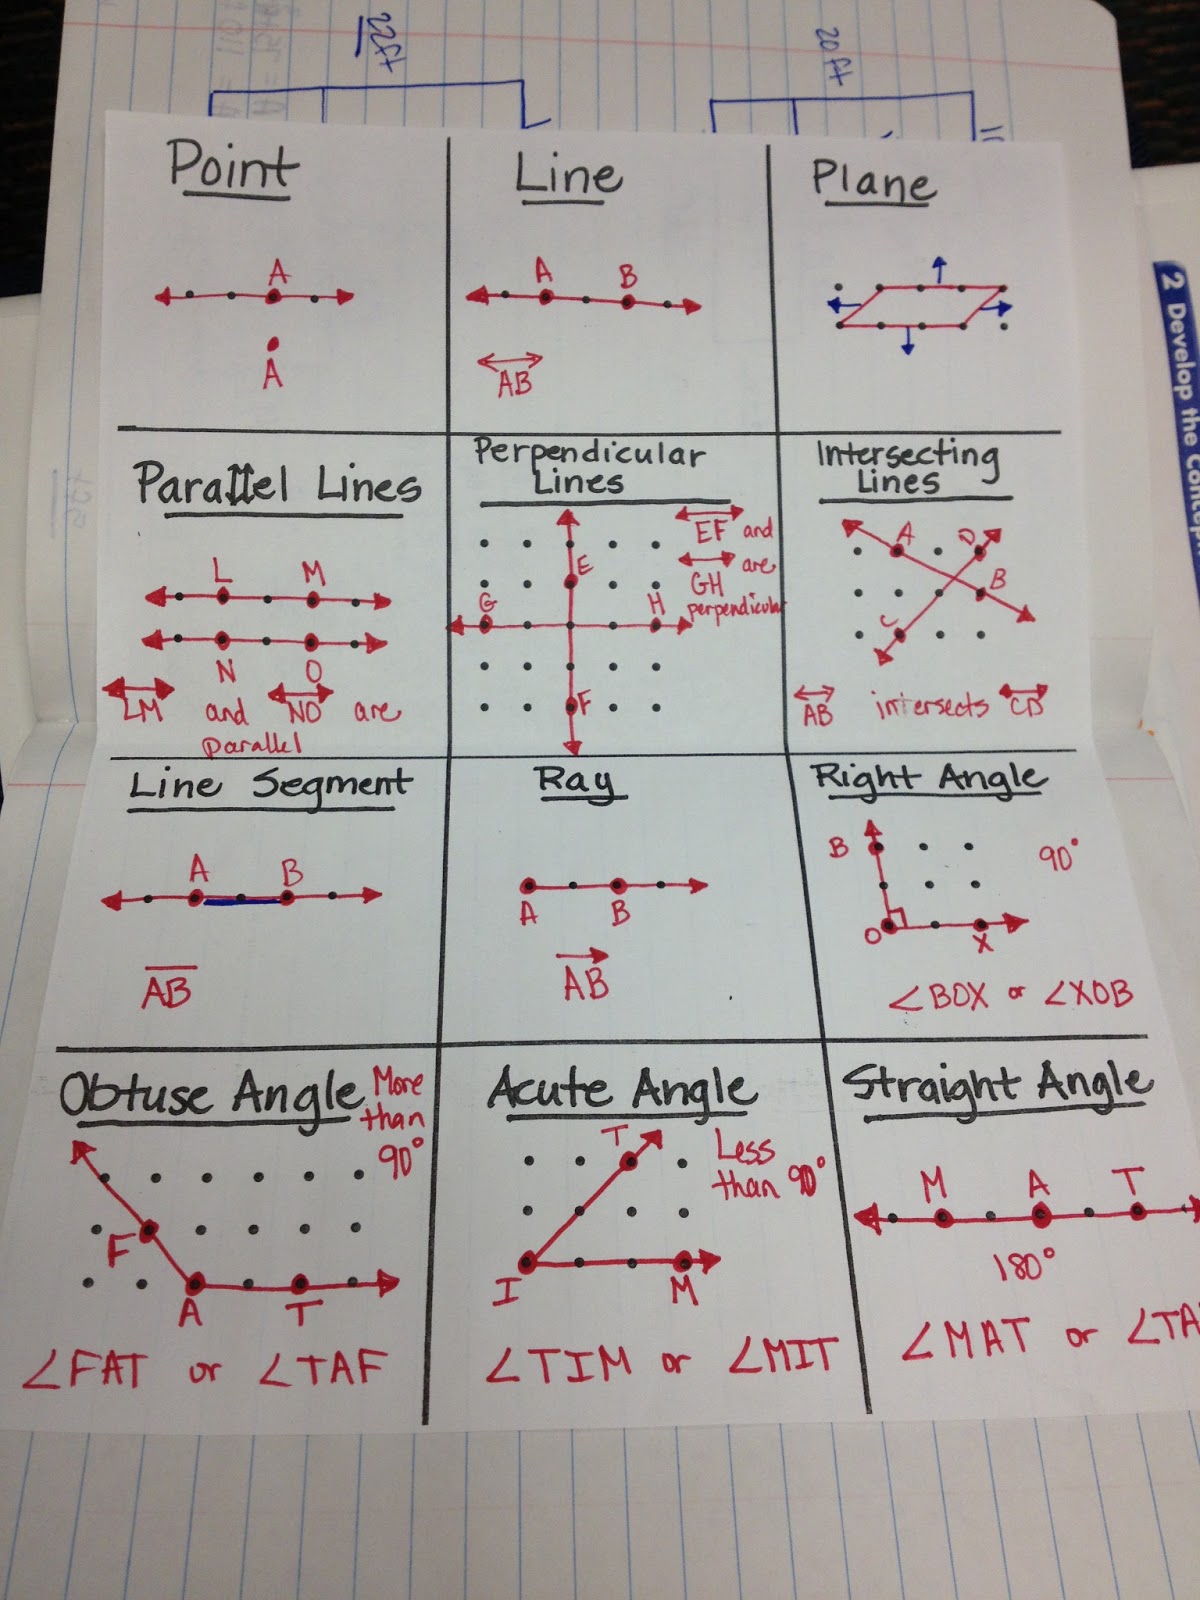 22ft
20ft
Point
A
A
Line
A B
AB
Plane
Parallel Lines
L M
N O
LM and NO are
parallel
Perpendicular
Lines
E
G H
F
EF and
GH are
perpendicular
Intersecting
Lines
A D
B
C
AB intersects CD
Line Segment
A B
AB
Ray
A B
AB
Right Angle
B
90°
O X
∠BOX or ∠XOB
Obtuse Angle
More
than
90°
F
A T
∠FAT or ∠TAF
Acute Angle
T
Less
than 90°
I M
∠TIM or ∠MIT
Straight Angle
M A T
180°
∠MAT or ∠TA
2 Develop the Concep